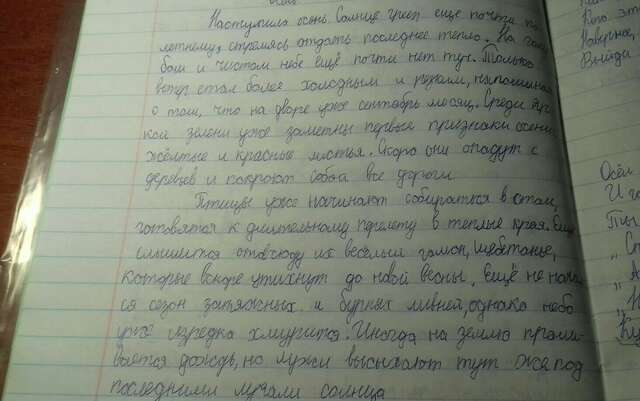 Осень
Наступила осень. Солнце греет ещё почти по
летнему, стремясь отдать последнее тепло. На голу
бом и чистом небе ещё почти нет туч. Только
ветер стал более холодным и резким, напоминая
о том, что на дворе уже сентябрь месяц. Среди яр
кой зелени уже заметны первые признаки осени
жёлтые и красные листья. Скоро они опадут с
деревьев и покроют собой все дороги
Птицы уже начинают собираться в стаи,
готовятся к длительному перелету в теплые края. Ещё
слышится отовсюду их веселый гомон, щебетанье,
которые вскоре утихнут до новой весны. Ещё не нача
ся сезон затяжных и бурных ливней, однако небо
уже изредка хмурится. Иногда на землю проли
вается дождь, но лужи высыхают тут же под
последними лучами солнца
Кто эт
Наверное,
Выйди
Осёл
И го
Ты